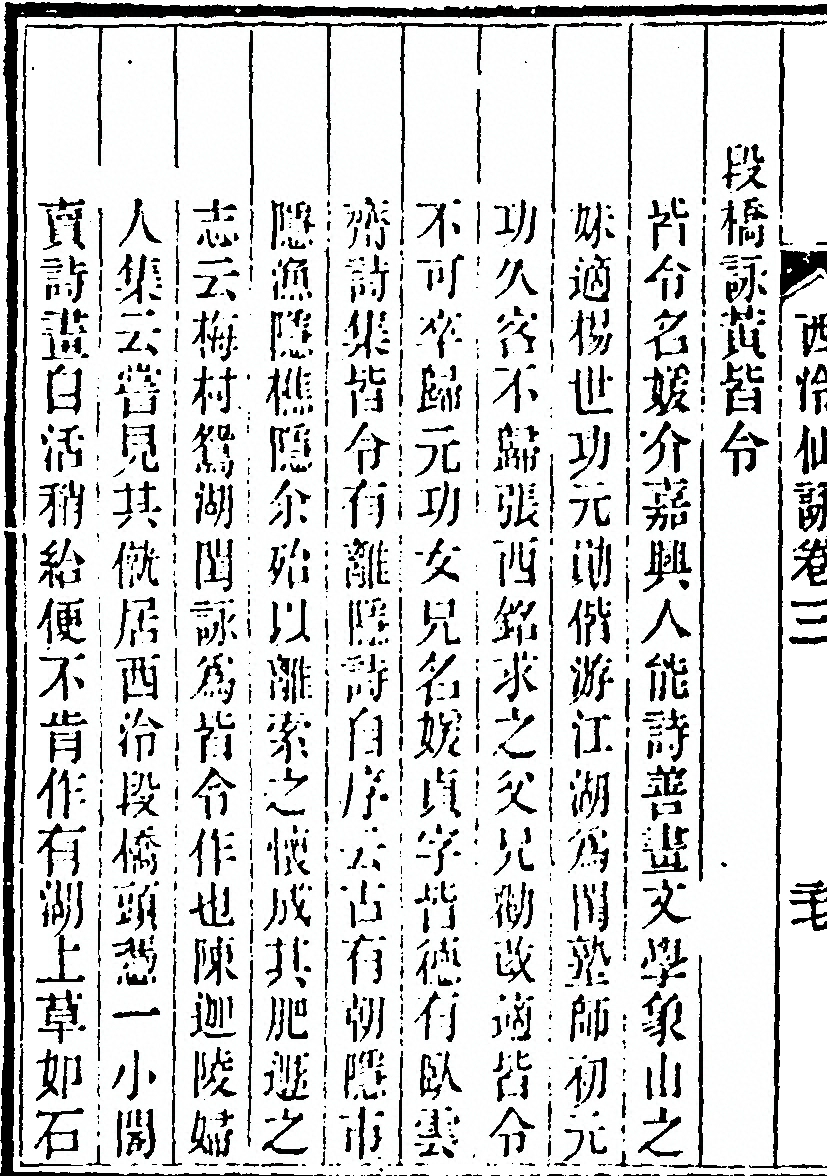 西泠仙詠卷三
毛
段橋詠黃皆令
皆令名媛介嘉興人能詩善畫文學象山之
妹適楊世功元勛偕游江湖爲閨塾師初元
功久客不歸張西銘求之父兄勸改適皆令
不可卒歸元功女兄名媛貞字皆德有臥雲
齋詩集皆令有離隱詩自序云古有朝隱市
隱漁隱樵隱余殆以離索之懷成其肥遯之
志云梅村鴛湖閨詠爲皆令作也陳迦陵婦
人集云嘗見其僦居西泠段橋頭憑一小閣
賣詩畫自活稍給便不肯作有湖上草如石